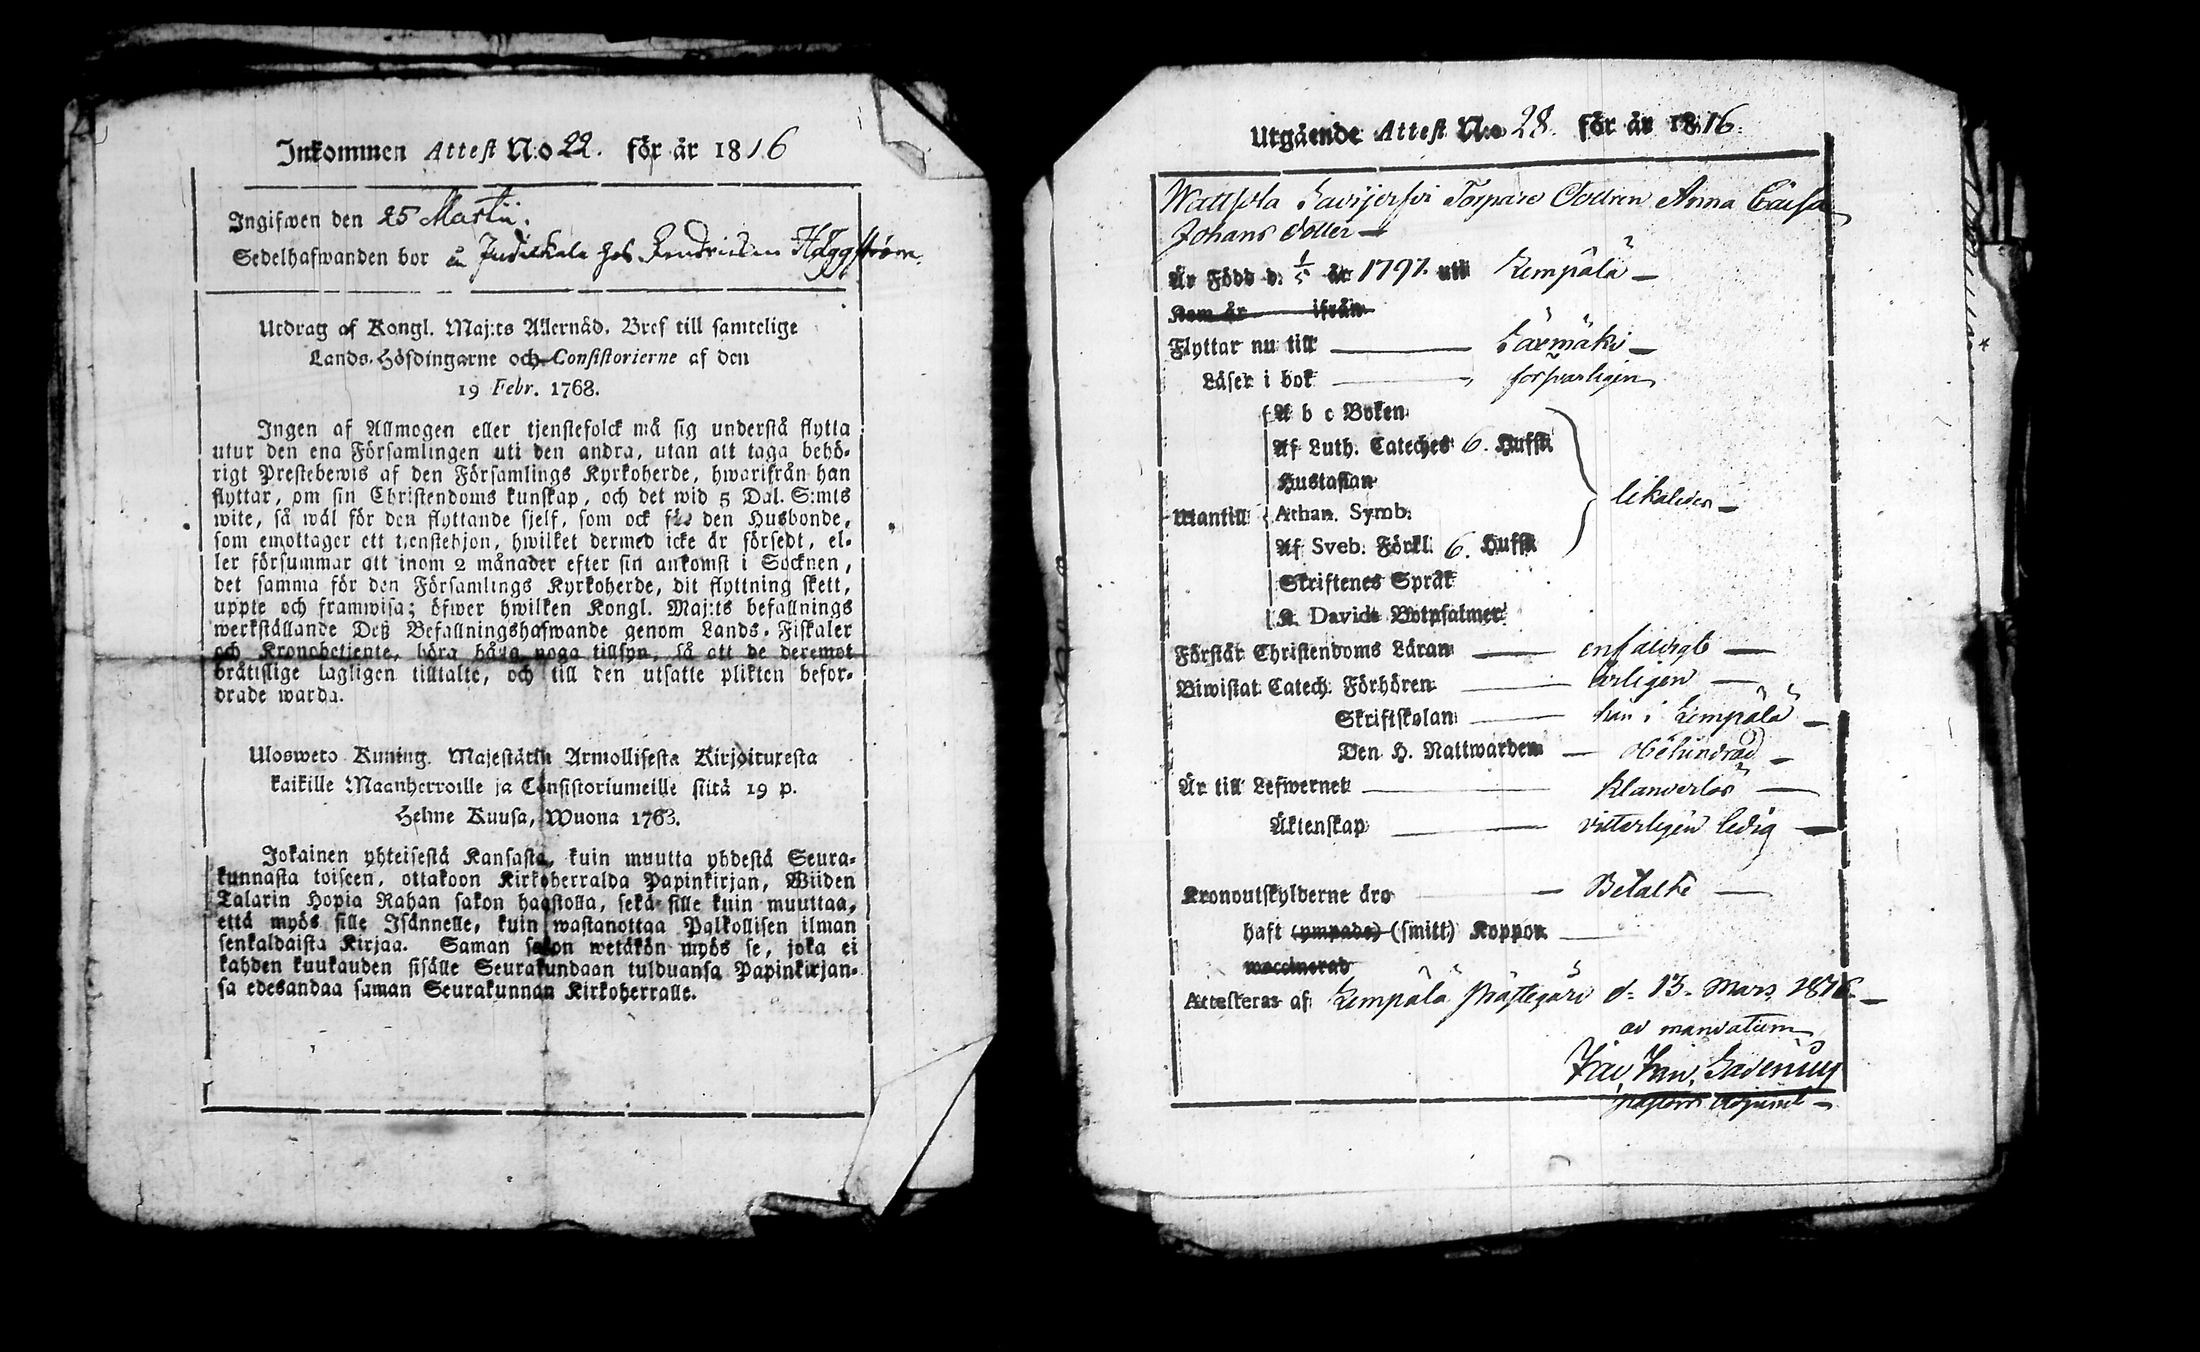 Inkommen Attest N:o 22. för år 1816
Ingifwen den 25 Martii.
Sedelhafwanden bor å hos Hendricsson Häggström.
Utdrag af Kongl. Maj:ts Allernåd. Bref till samtelige
Lands-Höfdingarne och Consistorierne af den
19 Febr. 1768.
Ingen af Allmogen eller tjenstefolck må sig understå flytta
utur den ena Församlingen uti den andra, utan att taga behö-
rigt Prestebewis af den Församlings Kyrkoherde, hwarifrån han
flyttar, om sin Christendoms kunskap, och det wid 5 Dal. S:mts
wite, så wäl för den flyttande sjelf, som ock för den Husbonde,
som emottager ett tjenstehjon, hwilket dermed icke är försedt, el-
ler försummar att inom 2 månader efter sin ankomst i Socknen,
det samma för den Församlings Kyrkoherde, dit flyttning skett,
uppte och framwisa; öfwer hwilken Kongl. Maj:ts befallnings
werkställande Deß Befallningshafwande genom Lands-Fiskaler
och Kronobetjente, böra hålla noga tillsyn, så att de deremot
brätislige lagligen tilltalte, och till den utsatte plikten befor-
drade warda.
Ulosweto Kuning. Majestätin Armollisesta Kirjoituxesta
kaikille Maanherroille ja Consistoriumeille siitä 19 p.
Helme Kuusa, Wuona 1763.
Jokainen yhteisestä Kansasta, kuin muutta yhdestä Seura-
kunnasta toiseen, ottakoon Kirkoherralda Papinkirjan, Wiiden
Talarin Hopia Rahan sakon haastolla, sekä sille kuin muuttaa,
että myös sille Isännelle, kuin wastanottaa Palkollisen ilman
senkaldaista Kirjaa. Saman sakon wetäkön myös se, joka ei
kahden kuukauden sisälle Seurakundaan tulduansa Papinkirjan-
sa edesandaa saman Seurakunnan Kirkoherralle.
Utgående Attest N:o 28. för år 1816.
Torpare Dottren Anna Caisa
Johans dotter
Är Född d. 1/5 år 1797. uti Lempälä
Kom år ifrån
Flyttar nu till Säxmäki
Läser i bok försvarligen
A b c Boken
Af Luth. Cateches 6. Hufst.
Hustaflan
Utantill Athan. Symb.
Af Sveb. Förkl. 6. Hufst.
likaledes
Skriftenes Språk
K. Davids Botpsalmer
Förstår Christendoms Läran enfaldigt
Biwistat Catech. Förhören årligen
Skriftskolan här i Lempälä
Den H. Nattwarden obehindrad
Är till Lefwernet klanderlös
Äktenskap vitterligen ledig
Kronoutskylderne äro Betalte
haft (ympade) (smitt) Koppor
waccinerad
Attesteras af Lempälä Prästegård d. 13. Mars 1816.
ad mandatum